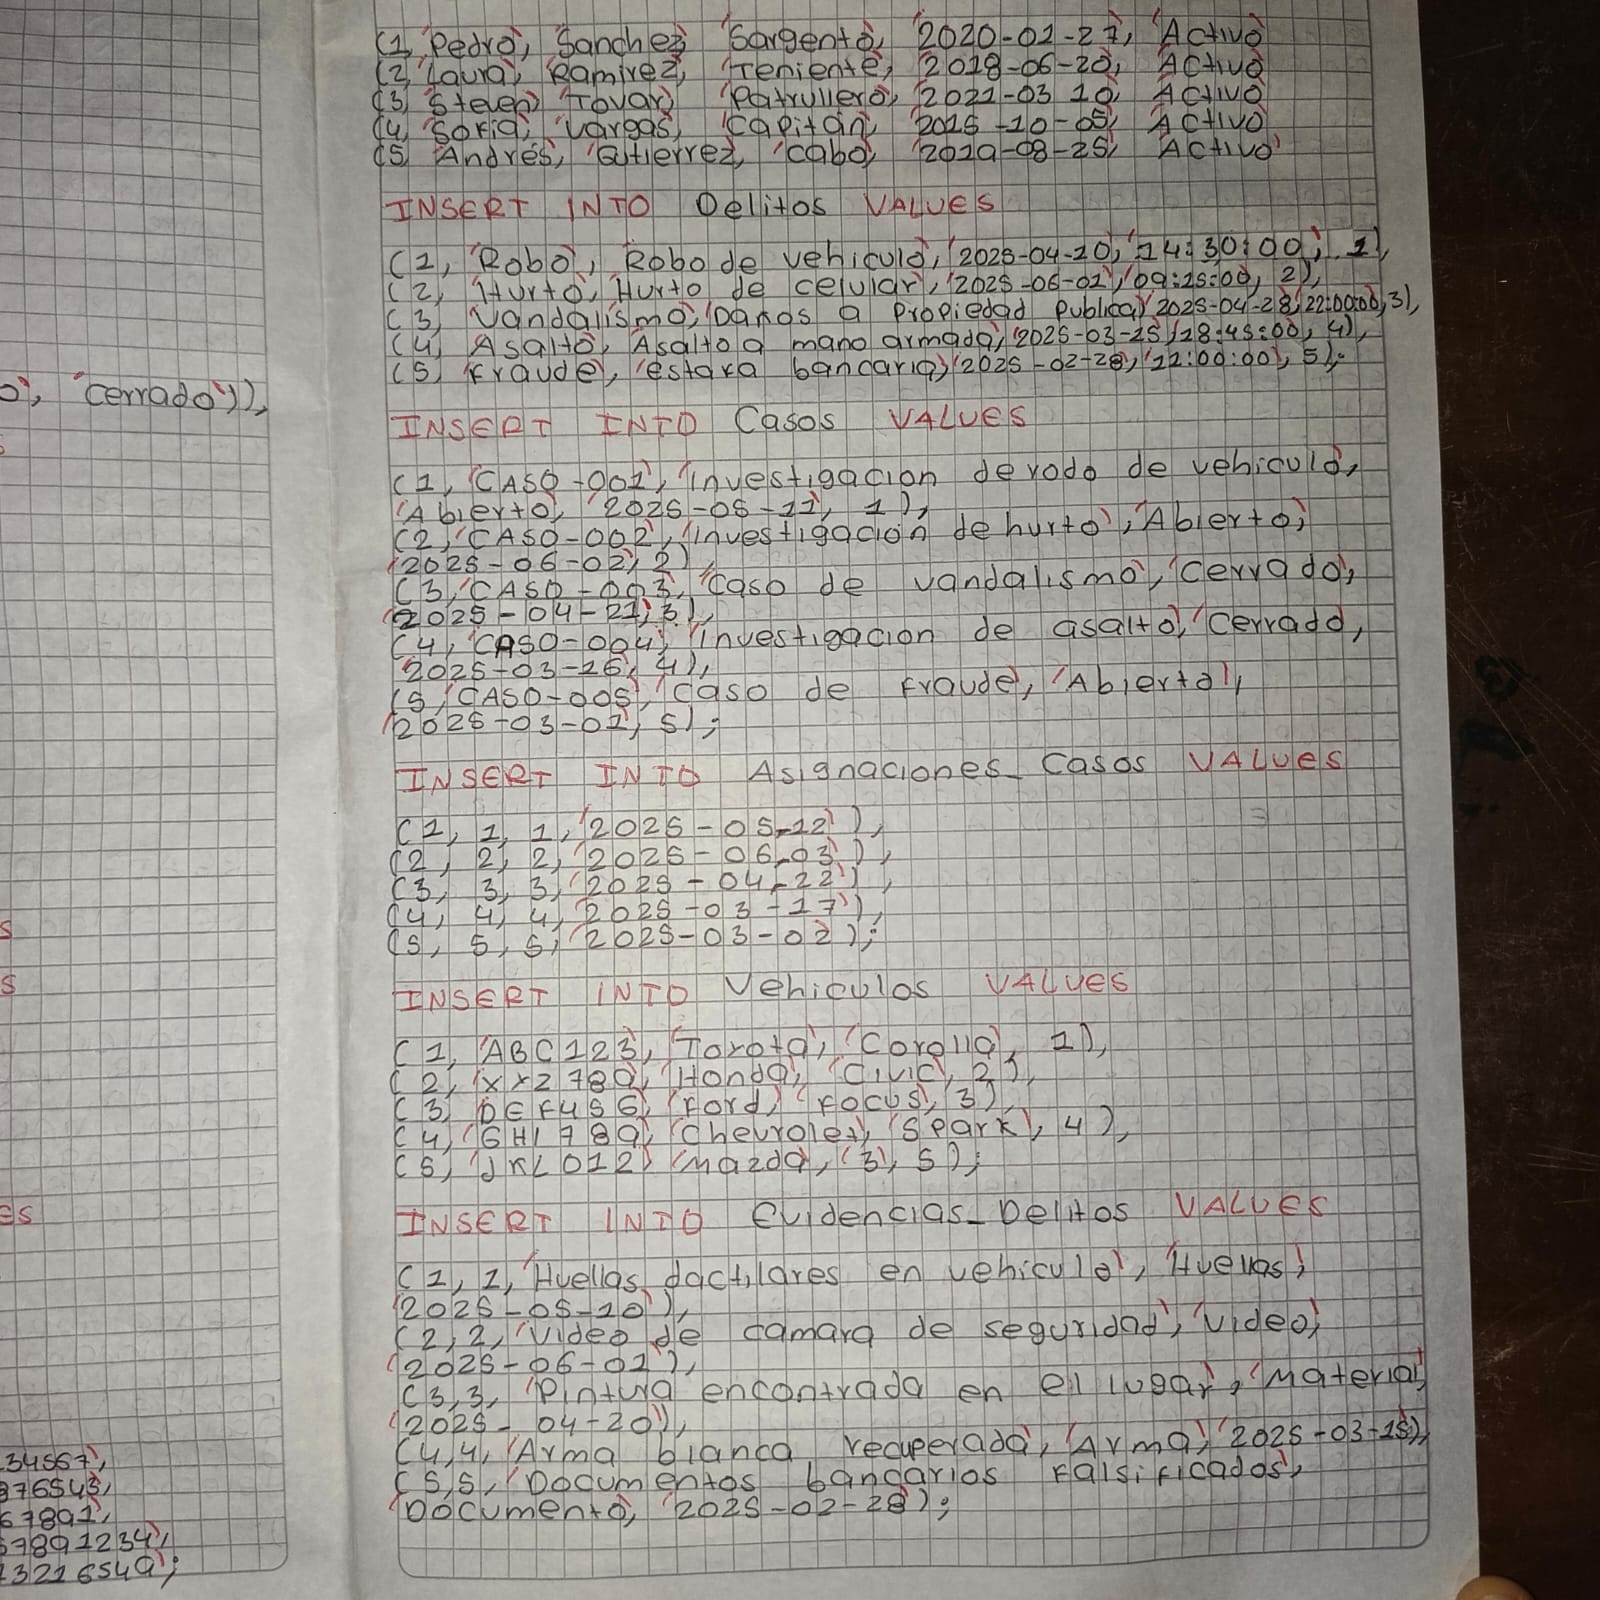 o', 'cerrado')),
s
s
s
es
34567',
876543',
67891',
67891234',
43216549';
(1, 'Pedro', 'Sanchez', 'Sargento', '2020-01-27', 'Activo'
(2, 'Laura', 'Ramirez', 'Teniente', '2018-06-20', 'Activo'
(3, 'Steven', 'Tovar', 'Patrullero', '2021-03 10', 'Activo'
(4, 'Sofia', 'Vargas', 'Capitán', '2015-10-05', 'Activo'
(5, 'Andrés', 'Gutierrez', 'Cabo', '2019-08-25', 'Activo'
INSERT INTO Delitos VALUES
(1, 'Robo', 'Robo de vehiculo', '2025-04-10', '14:30:00', 1),
(2, 'Hurto', 'Hurto de celular', '2025-06-01', '09:15:00', 2),
(3, 'Vandalismo', 'Danos a Propiedad Publica', '2025-04-28', '22:00:00', 3),
(4, 'Asalto', 'Asalto a mano armada', '2025-03-25', '18:45:00', 4),
(5, 'Fraude', 'estafa bancaria', '2025-02-28', '11:00:00', 5);
INSERT INTO Casos VALUES
(1, 'CASO-001', 'Investigacion de rodo de vehiculo',
'Abierto', '2025-05-11', 1),
(2, 'CASO-002', 'Investigacion de hurto', 'Abierto',
'2025-06-02', 2),
(3, 'CASO-003', 'Caso de vandalismo', 'Cerrado',
'2025-04-21', 3),
(4, 'CASO-004', 'Investigacion de asalto', 'Cerrado',
'2025-03-26', 4),
(5, 'CASO-005', 'Caso de Fraude', 'Abierto',
'2025-03-01', 5);
INSERT INTO Asignaciones_Casos VALUES
(1, 1, 1, '2025-05-12'),
(2, 2, 2, '2025-06-03'),
(3, 3, 3, '2025-04-22'),
(4, 4, 4, '2025-03-17'),
(5, 5, 5, '2025-03-02');
INSERT INTO Vehiculos VALUES
(1, 'ABC123', 'Toyota', 'Corolla', 1),
(2, 'XYZ789', 'Honda', 'Civic', 2),
(3, 'DEF456', 'Ford', 'Focus', 3),
(4, 'GHI789', 'Chevrolet', 'Spark', 4),
(5, 'JKL012', 'Mazda', '3', 5);
INSERT INTO Evidencias_Delitos VALUES
(1, 1, 'Huellas dactilares en vehiculo', 'Huellas',
'2025-05-10'),
(2, 2, 'Video de camara de seguridad', 'Video',
'2025-06-01'),
(3, 3, 'Pintura encontrada en el lugar', 'Material',
'2025-04-20'),
(4, 4, 'Arma blanca recuperada', 'Arma', '2025-03-15'),
(5, 5, 'Documentos bancarios Falsificados',
'Documento', '2025-02-28');